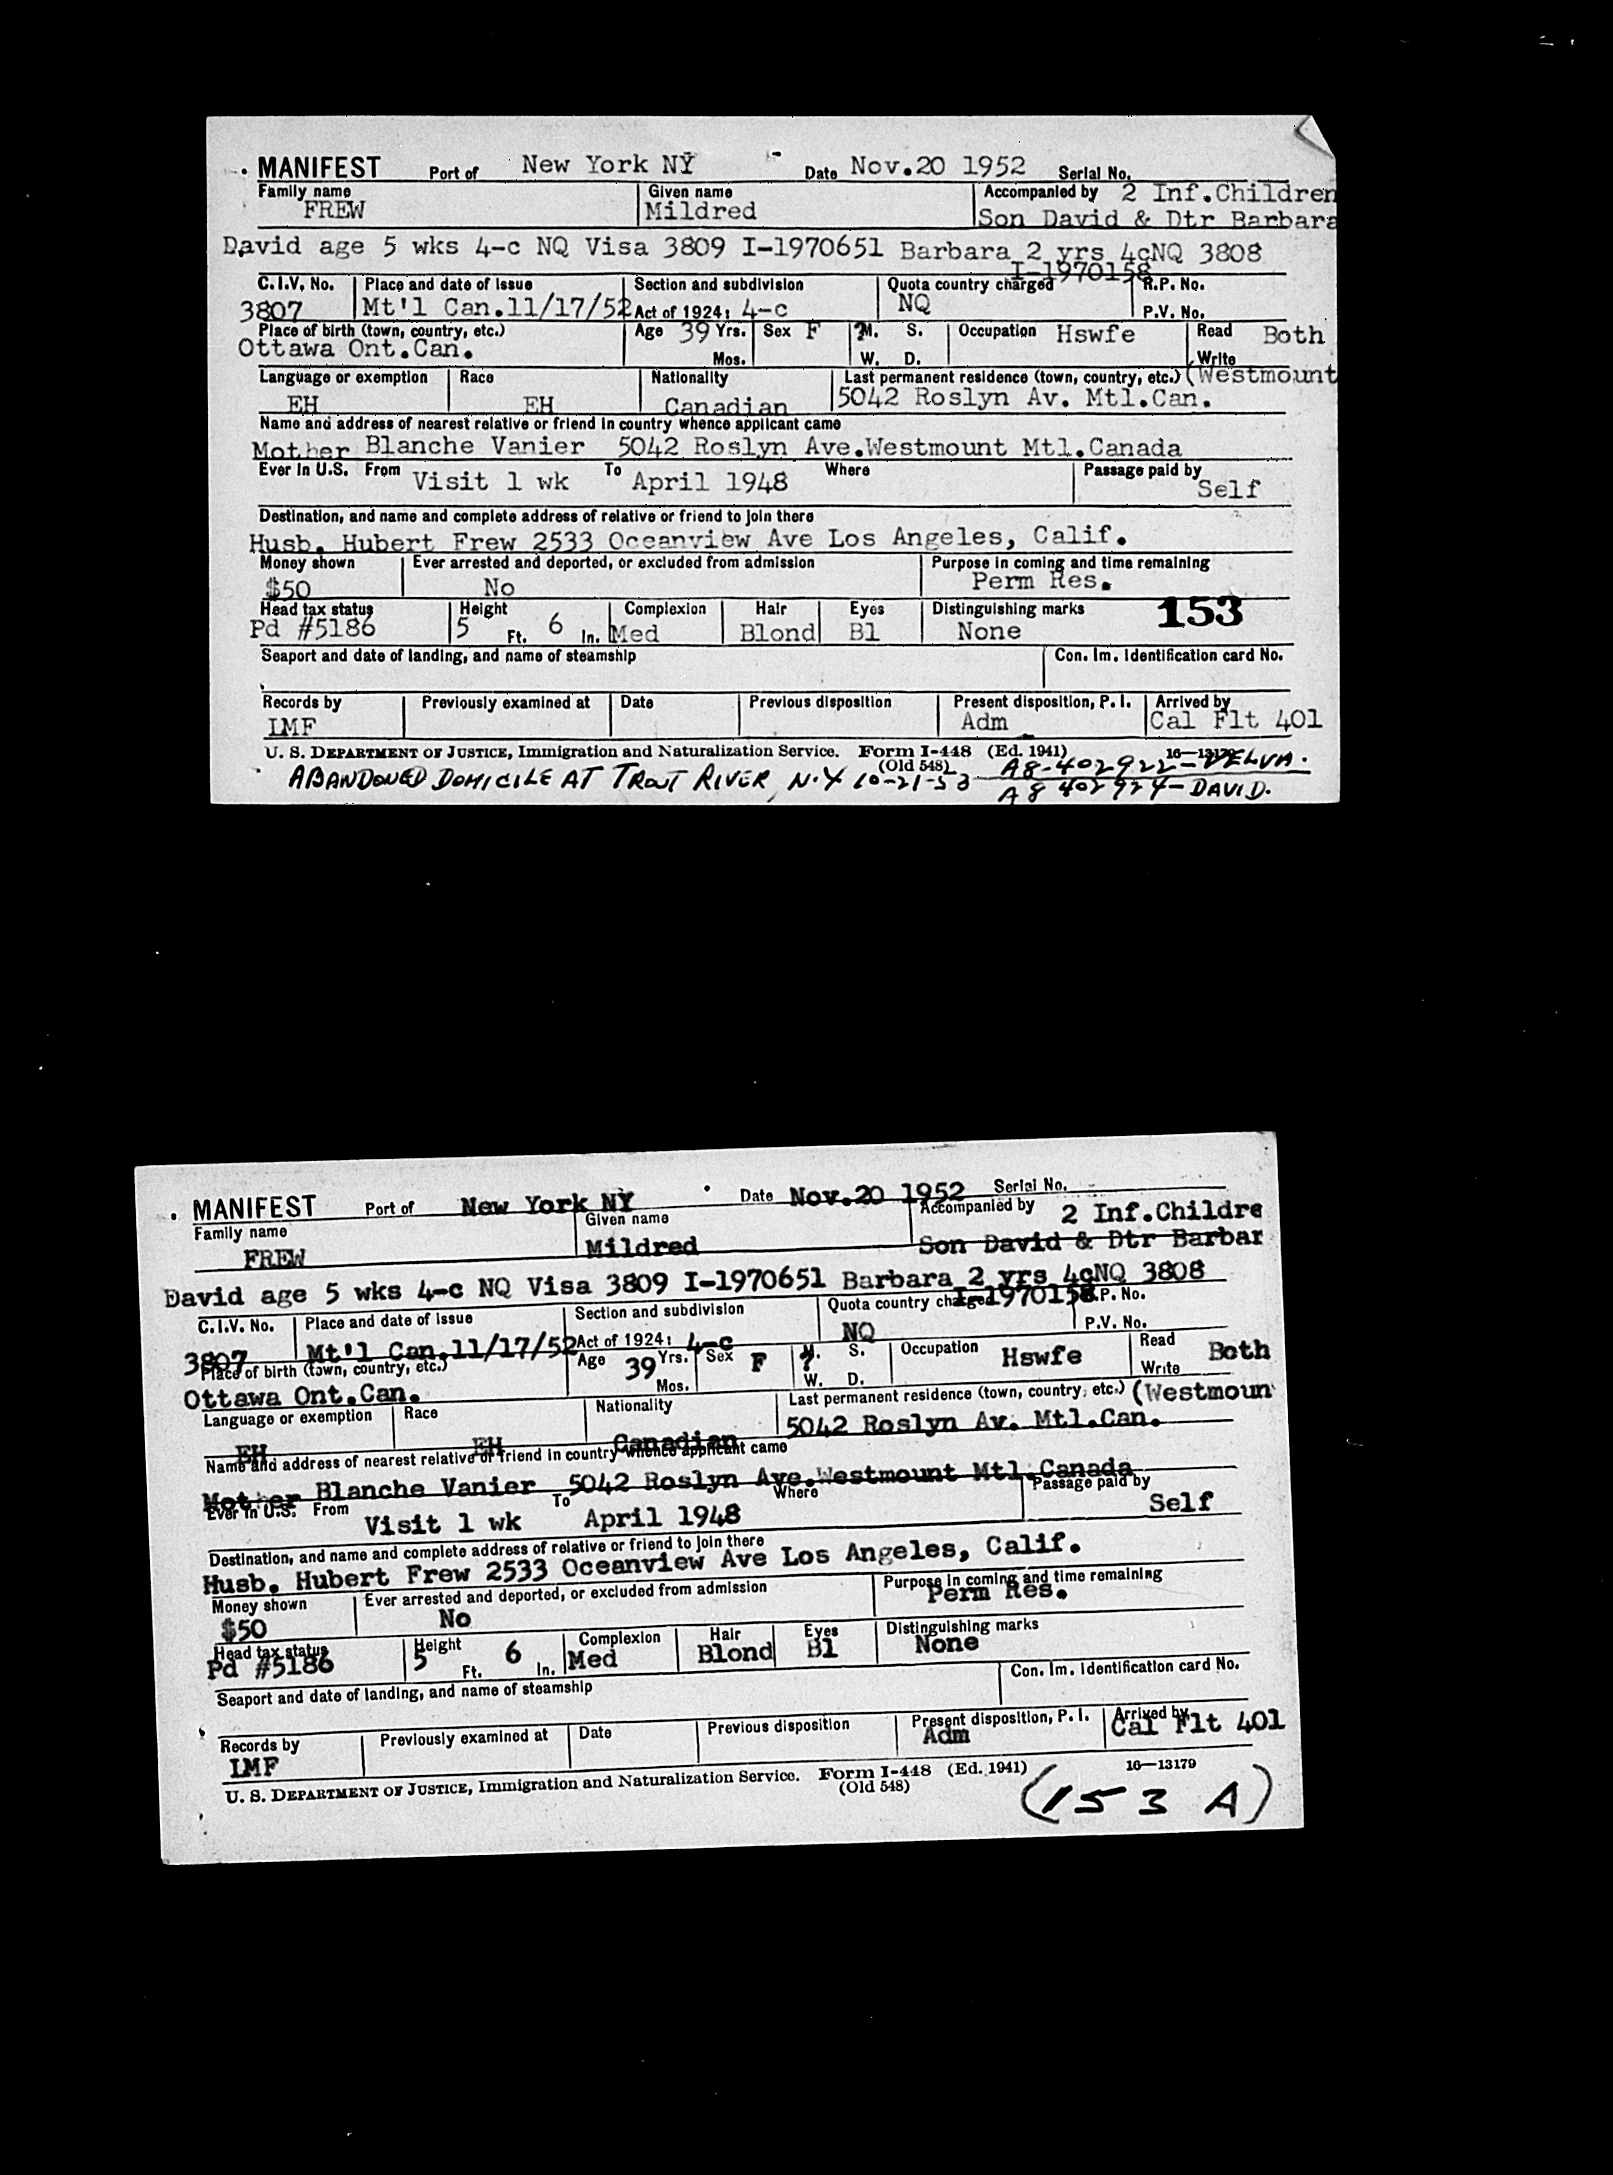 MANIFEST Port of New York NY Date Nov.20 1952 Serial No.
Family name Given name Accompanied by 2 Inf.Children
FREW Mildred Son David & Dtr Barbara
David age 5 wks 4-c NQ Visa 3809 I-1970651 Barbara 2 yrs 4cNQ 3808
I-1970158
C.I.V. No. Place and date of issue Section and subdivision Quota country charged R.P. No.
3807 Mt'l Can.11/17/52 Act of 1924: 4-c NQ P.V. No.
Place of birth (town, country, etc.) Age 39 Yrs. Sex F M. S. Occupation Hswfe Read Both
Ottawa Ont.Can. Mos. W. D. Write
Language or exemption Race Nationality Last permanent residence (town, country, etc.) (Westmount
EH EH Canadian 5042 Roslyn Av. Mtl.Can.
Name and address of nearest relative or friend in country whence applicant came
Mother Blanche Vanier 5042 Roslyn Ave.Westmount Mtl.Canada
Ever in U.S. From Visit 1 wk To April 1948 Where Passage paid by
Self
Destination, and name and complete address of relative or friend to join there
Husb. Hubert Frew 2533 Oceanview Ave Los Angeles, Calif.
Money shown Ever arrested and deported, or excluded from admission Purpose in coming and time remaining
$50 No Perm Res.
Head tax status Height Complexion Hair Eyes Distinguishing marks 153
Pd #5186 5 Ft. 6 In. Med Blond Bl None
Seaport and date of landing, and name of steamship Con. Im. Identification card No.
Records by Previously examined at Date Previous disposition Present disposition, P. I. Arrived by
LMF Adm Cal Flt 401
U. S. DEPARTMENT OF JUSTICE, Immigration and Naturalization Service. Form I-448 (Ed. 1941) 16—13179
(Old 548) A8-402922- DELVA.
ABANDONED DOMICILE AT TROUT RIVER, N.Y 10-21-53 A8 402924- DAVID.
MANIFEST Port of New York NY Date Nov.20 1952 Serial No.
Family name Given name Accompanied by 2 Inf.Childre
FREW Mildred Son David & Dtr Barbar
David age 5 wks 4-c NQ Visa 3809 I-1970651 Barbara 2 yrs 4cNQ 3808
I-1970158
C.I.V. No. Place and date of issue Section and subdivision Quota country charged R.P. No.
3807 Mt'l Can.11/17/52 Act of 1924: 4-c NQ P.V. No.
Place of birth (town, country, etc.) Age 39 Yrs. Sex F M. S. Occupation Hswfe Read Both
Ottawa Ont.Can. Mos. W. D. Write
Language or exemption Race Nationality Last permanent residence (town, country, etc.) (Westmoun
EH EH Canadian 5042 Roslyn Av. Mtl.Can.
Name and address of nearest relative or friend in country whence applicant came
Mother Blanche Vanier 5042 Roslyn Ave.Westmount Mtl.Canada
Ever in U.S. From Visit 1 wk To April 1948 Where Passage paid by
Self
Destination, and name and complete address of relative or friend to join there
Husb. Hubert Frew 2533 Oceanview Ave Los Angeles, Calif.
Money shown Ever arrested and deported, or excluded from admission Purpose in coming and time remaining
$50 No Perm Res.
Head tax status Height Complexion Hair Eyes Distinguishing marks
Pd #5186 5 Ft. 6 In. Med Blond Bl None
Seaport and date of landing, and name of steamship Con. Im. Identification card No.
Records by Previously examined at Date Previous disposition Present disposition, P. I. Arrived by
LMF Adm Cal Flt 401
U. S. DEPARTMENT OF JUSTICE, Immigration and Naturalization Service. Form I-448 (Ed. 1941) 16—13179
(Old 548) (153 A)